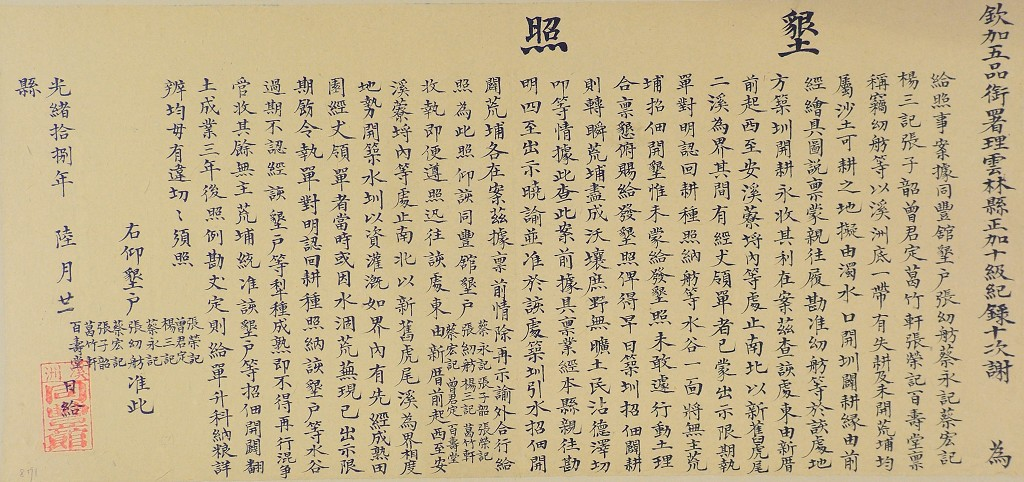 墾照
欽加五品銜署理雲林縣正加十級紀錄十次謝 為
給照事案據同豐館墾戶張幼舫蔡永記蔡宏記
楊三記張子韶曾君定葛竹軒張榮記百壽堂稟
稱竊幼舫等以溪洲底一帶有失耕及未開荒埔均
屬沙土可耕之地擬由濁水口開圳闢耕緣由前
經繪具圖說稟蒙親往履勘准幼舫等於該處地
方築圳開耕永收其利在案茲查該處東由新厝
前起西至安溪藔埒內等處止南北以新舊虎尾
二溪為界其間有經丈領單者已蒙出示限期執
單對明認回耕種照納舫等水谷一面將無主荒
埔招佃開墾惟未蒙給發墾照未敢遽行動土理
合稟懇俯賜給發墾照俾得早日築圳招佃闢耕
則轉瞬荒埔盡成沃壤庶野無曠土民沾德澤切
叩等情據此查此案前據具稟業經本縣親往勘
明四至出示曉諭並准於該處築圳引水招佃開
闢荒埔各在案茲據稟前情除再示諭外合行給
照為此照仰該同豐館墾戶蔡永記張子韶張榮記張幼舫楊三記葛竹軒蔡宏記曾君定百壽堂
收執即便遵照迅往該處東由新厝前起西至安
溪藔埒內等處止南北以新舊虎尾溪為界相度
地勢開築水圳以資灌溉如界內有先經成熟田
園經丈領單者當時或因水涸荒蕪現已出示限
期飭令執單對明認回耕種照納該墾戶等水谷
過期不認經該墾戶等犁種成熟即不得再行混爭
管收其餘無主荒埔統准該墾戶等招佃開闢翻
土成業三年後照例勘丈定則給單升科納粮詳
辦均毋有違切〻須照
右仰墾戶張榮記曾君定楊三記蔡永記張幼舫蔡宏記張子韶葛竹軒百壽堂准此
光緒拾捌年 陸 月 廿 日給
縣
871